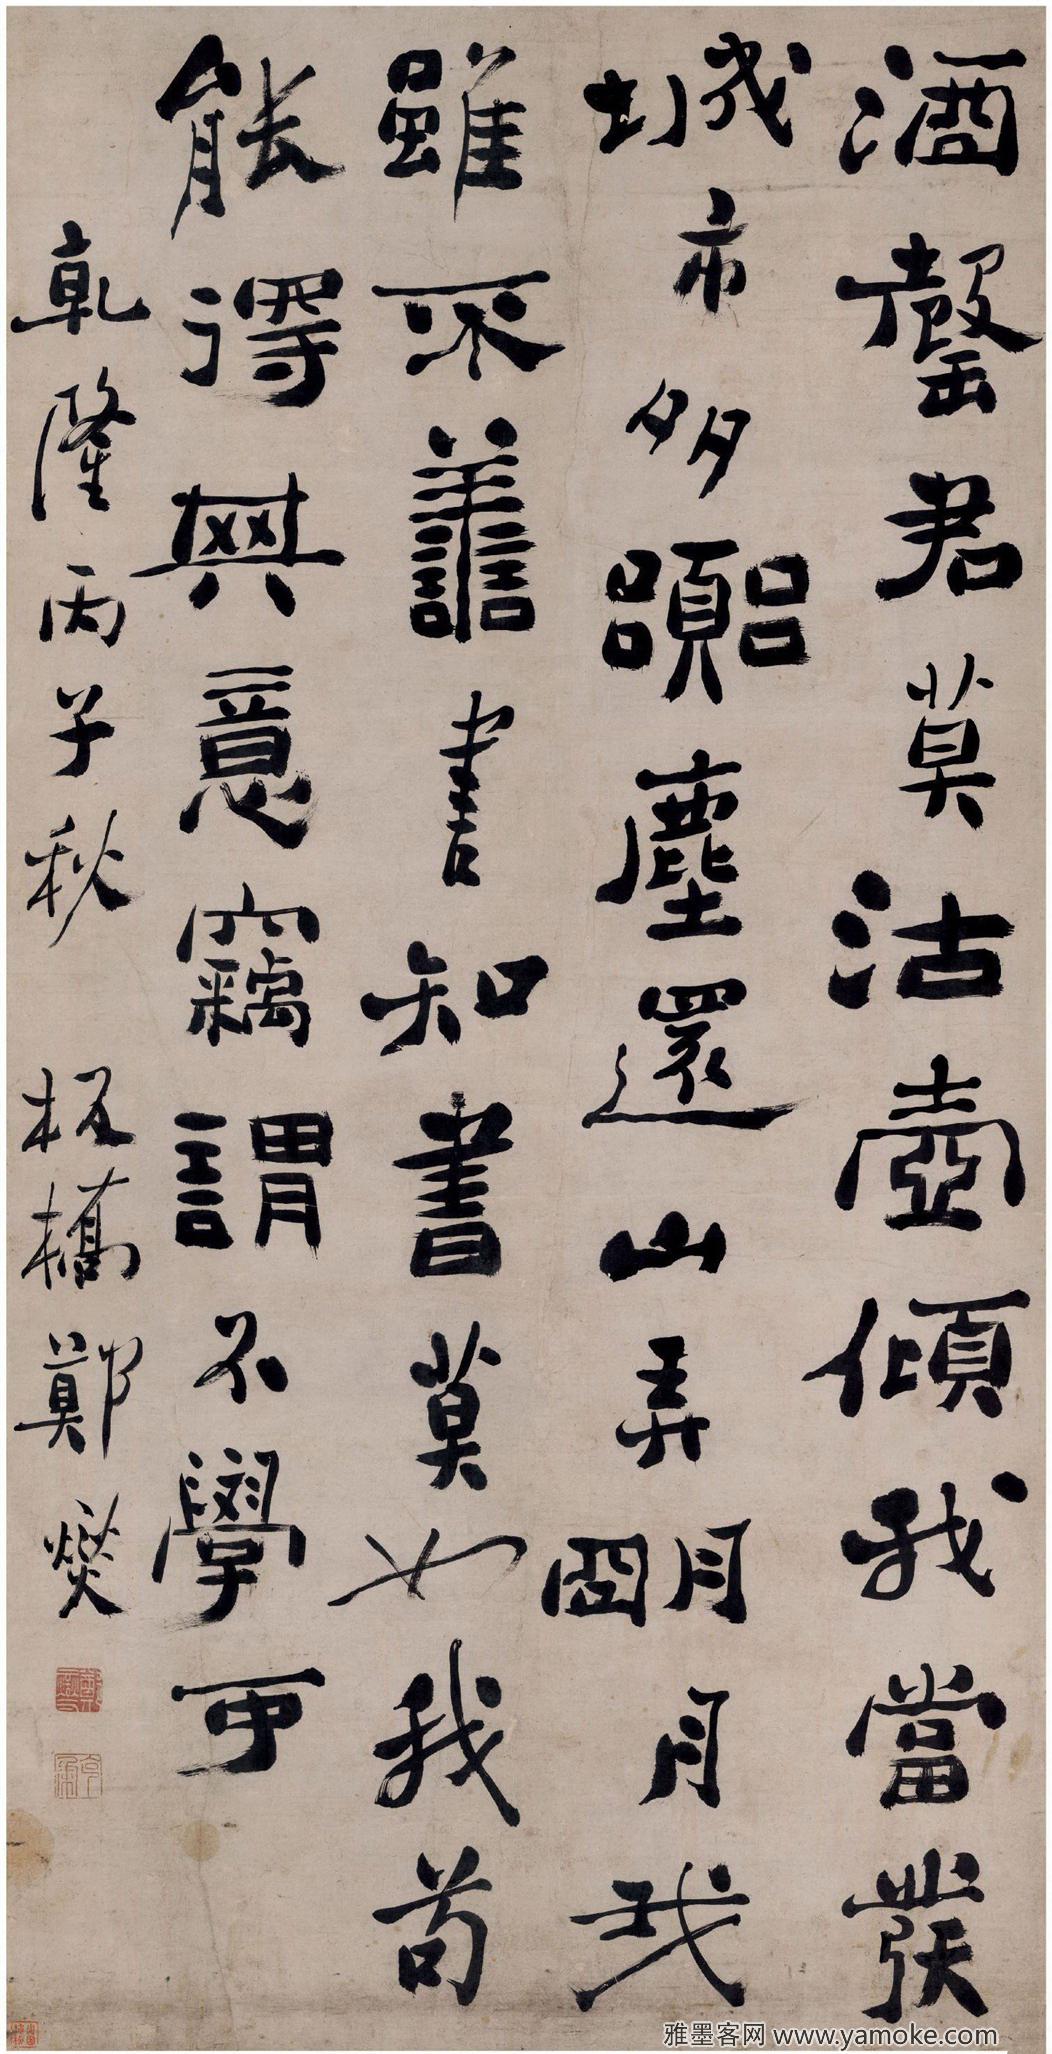 酒罄君莫沽壺傾我當發
城市多囂塵還山弄明月我
雖不善書知書莫如我苟
能得其意竊謂不學可
乾隆丙子秋 板橋鄭燮
雅墨客网 www.yamoke.com